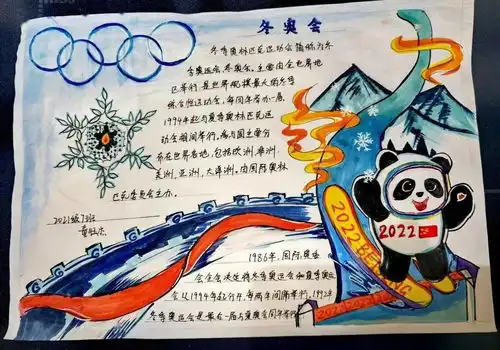 冬奥会
冬季奥林匹克运动会简称为冬
季奥运会、冬奥会。主要由全世界地
区举行,是世界规模最大的冬季
综合性运动会,每四年举办一届
1994年起与夏季奥林匹克运
动会相间举行。参与国主要分
布在世界各地,包括欧洲、非洲、
美洲、亚洲、大洋洲。由国际奥林
匹克委员会主办。
2021级13班
1986年,国际奥委
会全会决定将冬季奥运会和夏季奥运
会从1994年起分开,每两年间隔举行,1992年
冬季奥运会是最后一届与夏奥会同年举行
2022
2022 BEIJING